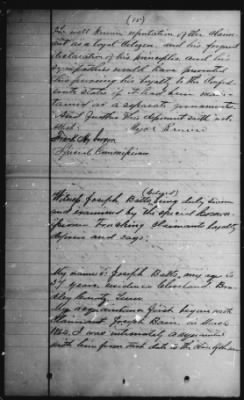 (15)
The well known reputation of the claim-
ant as a loyal Citizen, and his frequent
declaration of his principles, and his
sympathies would have prevented
his proving his loyalty to the Confed-
erate States if it had been main-
tained as a separate government.
And further this deponent saith not.
Special Commissioner
(Colored)
Witness Joseph Batts, being duly sworn
and examined by the special Commis-
sioner touching Claimants loyalty
deposes and says:
My name is Joseph Batts, my age is
37 years residence Cleveland Brad-
ley County, Tenn.
My acquaintance first began with
Claimant Joseph in
1864. I was intimately acquainted
with him from that date to the